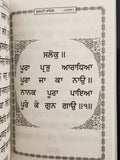 ਸਲੋਕੁ ॥
ਪੂਰਾ ਪ੍ਰਭੁ ਆਰਾਧਿਆ
ਪੂਰਾ ਜਾ ਕਾ ਨਾਉ ॥
ਨਾਨਕ ਪੂਰਾ ਪਾਇਆ
ਪੂਰੇ ਕੇ ਗੁਨ ਗਾਉ ॥੧॥